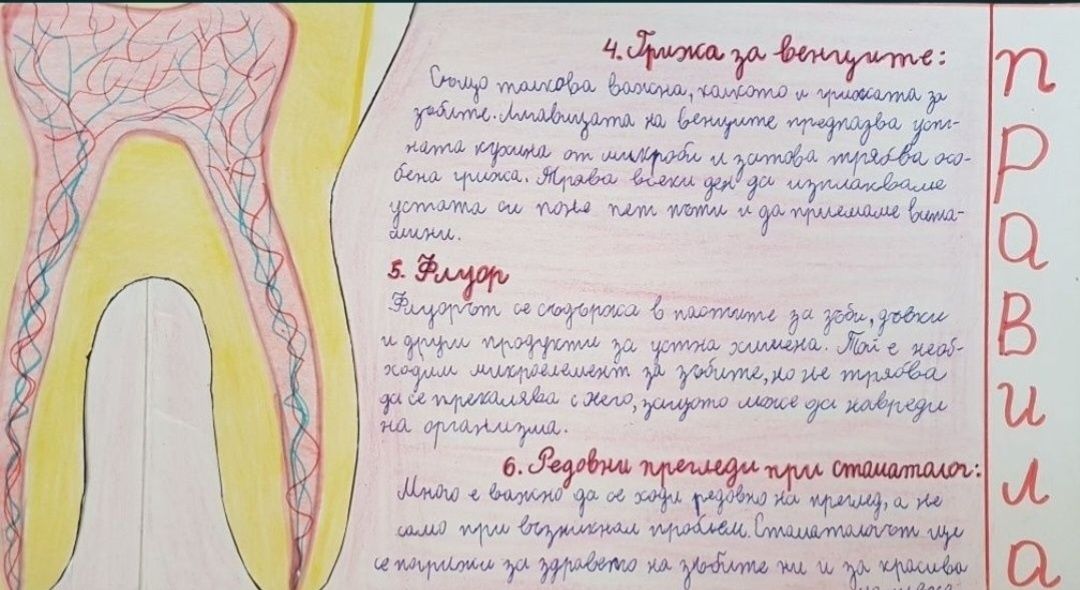 4. Грижа за венците:
Също толкова важна, колкото и грижата за
зъбите. Лигавицата на венците предпазва уст-
ната кухина от микроби и затова трябва осо-
бена грижа. Трябва всеки ден да изплакваме
устата си поне пет пъти и да приемаме вита-
мини.
5. Флуор
Флуорът се съдържа в пастите за зъби, дъвки
и други продукти за устна хигиена. Той е необ-
ходим микроелемент за зъбите, но не трябва
да се прекалява с него, защото може да навреди
на организма.
6. Редовни прегледи при стоматолог:
Много е важно да се ходи редовно на преглед, а не
само при възникнал проблем. Стоматологът ще
се погрижи за здравето на зъбите ни и за красива
правила